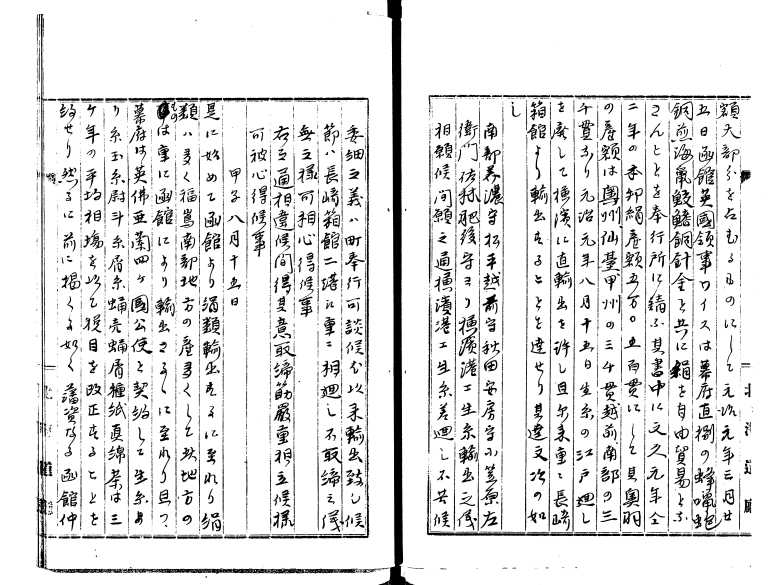 額大部分を占むるものにして元治元年三月廿
五日函館英國領事ワイスは幕府直捌の蜂蝋鮑
銅煎海鼠鮫鰭銅針金と共に絹を自由貿易と
さんことを奉行所に請ふ其書中に文久元年仝
二年の本邦絹産額五万〇五百貫にして奥羽
の産額は奥州仙臺甲州の三千貫越前南部の三
千貫なり元治元年八月十五日生糸の江戸廻し
を廃して横濱に直輸出を許し且尓来重に長崎
箱館より輸出することを達せり其達文次の如
し
南部美濃守松平越前守秋田安房守小笠原左
衛門佐 肥後守ヨリ横濱港エ生糸輸出之儀
相願候間願之通横濱港エ生糸差廻し不苦候
委細之義ハ町奉行可談候尓以来輸出致し候
節ハ長崎箱館二港に重ニ相廻し不取締之儀
無之様可相心得候事
右之通相達候間得其意取締筋嚴重相立候様
可被心得候事
甲子八月十五日
是に始めて函館より絹類輸出するに至れり絹
類ハ多く福嶌南部地方の産多くして秋地方の
ものは重に函館により輸出さるゝに至れり且つ
幕府は英佛亜蘭四ヶ國公使と契約して生糸よ
り糸玉糸尉斗糸屑糸蛹売蛹屑種紙真綿茶は三
ケ年の平均相場を以て税目を改正することを
約せり然るに前に掲くる如く藩資なる函館仲
北海道廳
北海道廳